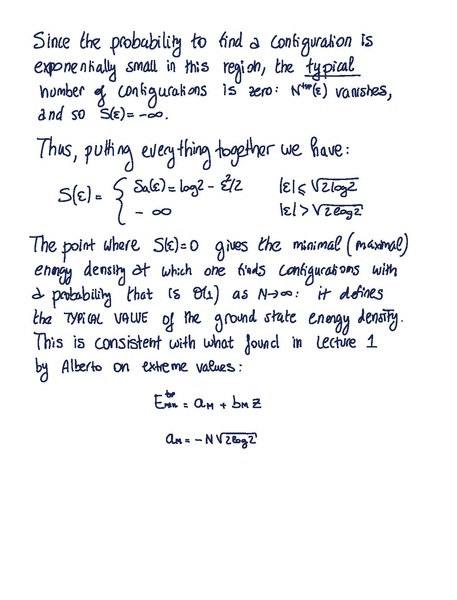 Since the probability to find a configuration is
exponentially small in this region, the typical
number of configurations is zero: N^typ(ε) vanishes,
and so S(ε) = -∞.
Thus, putting everything together we have:
S(ε) = { Sa(ε) = log2 - ε²/2 |ε| ≤ √2log2
- ∞ |ε| > √2log2
The point where S(ε)=0 gives the minimal (maximal)
energy density at which one finds configurations with
a probability that is O(1) as N→∞: it defines
the TYPICAL VALUE of the ground state energy density.
This is consistent with what found in Lecture 1
by Alberto on extreme values:
E^typ_min = a_M + b_M z
a_M = - N √2log2